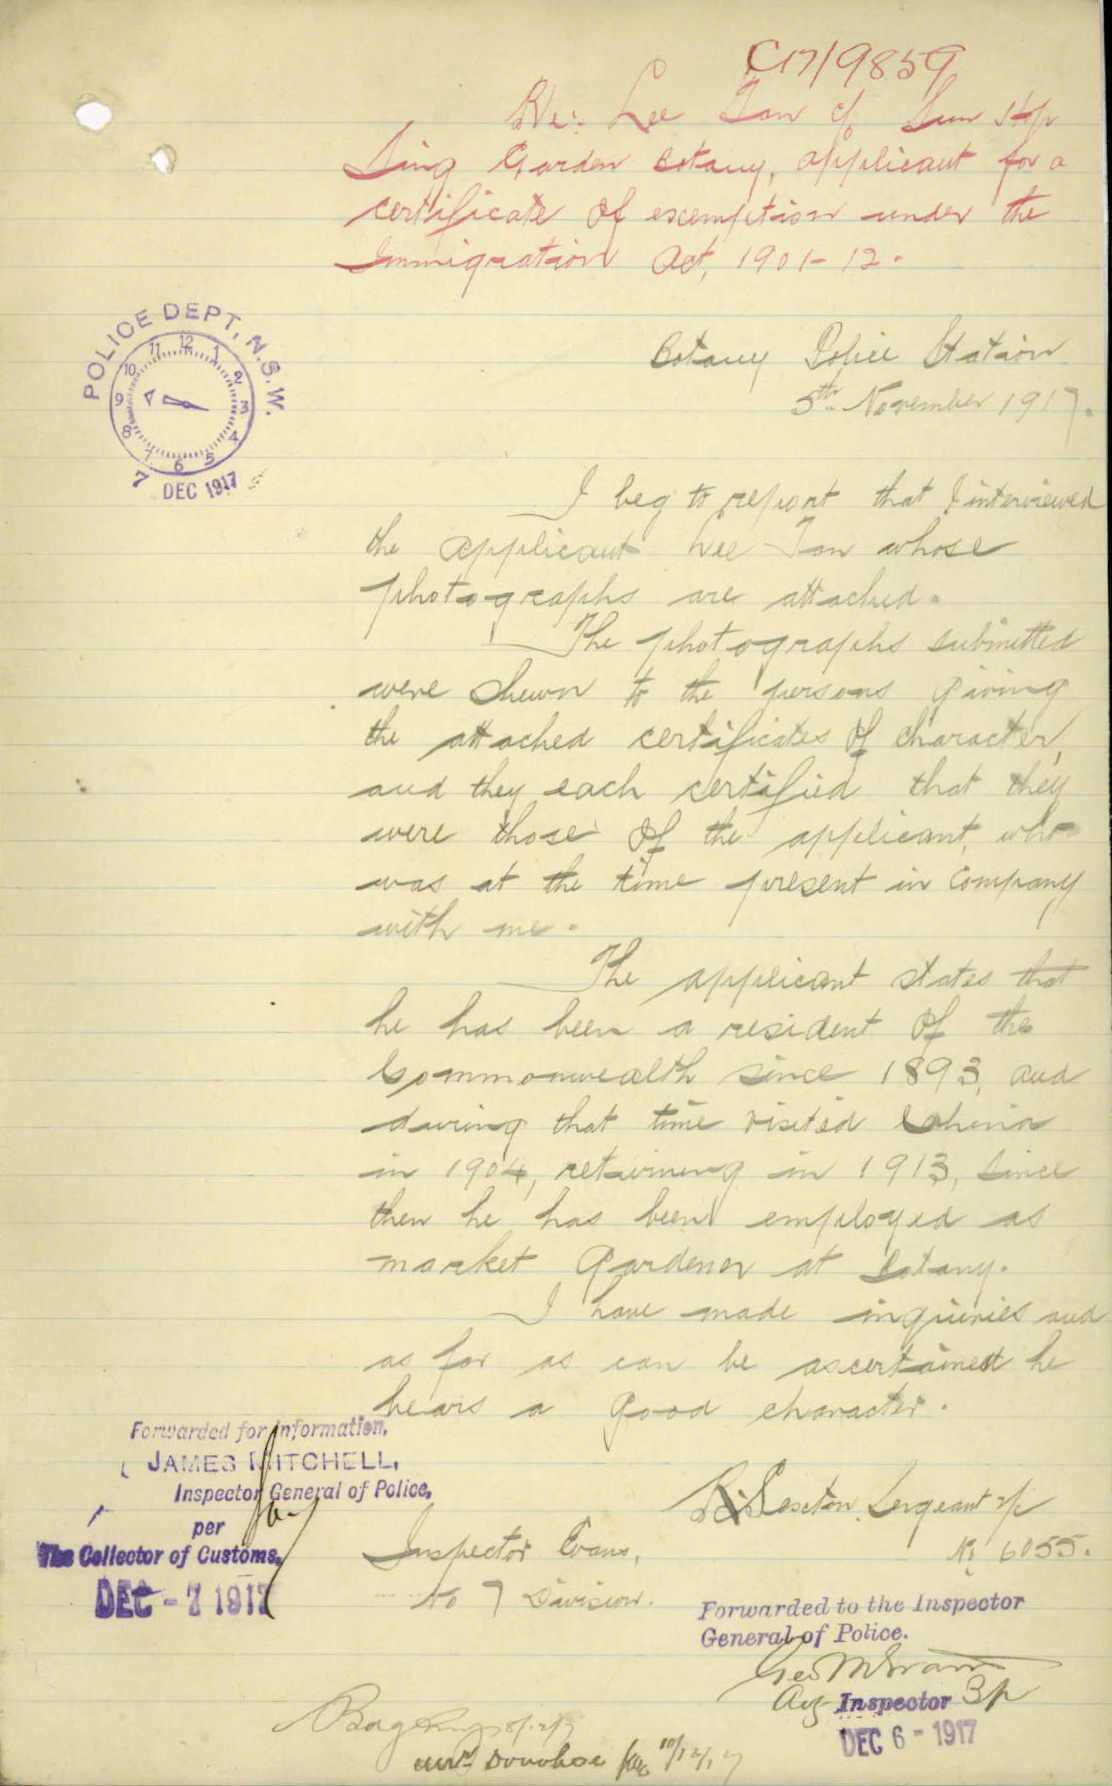 C17/9859
Re: Lee Tan c/o Sun Hop
Sing Garden Botany, applicant for a
certificate of exemption under the
Immigration Act, 1901-12.
POLICE DEPT, N.S.W.
12 1 2 3 4 5 6 7 8 9 10 11
7 DEC 1917
Botany Police Station
5th November 1917.
I beg to report that I interviewed
the applicant Lee Tan whose
photographs are attached.
The photographs submitted
were shewn to the persons giving
the attached certificates of character,
and they each certified that they
were those of the applicant, who
was at the time present in company
with me.
The applicant states that
he has been a resident of the
Commonwealth since 1893, and
during that time visited China
in 1904, returning in 1913, since
then he has been employed as
market gardener at Botany.
I have made inquiries and
as far as can be ascertained he
bears a good character.
Forwarded for Information.
JAMES MITCHELL,
Inspector General of Police,
per
The Collector of Customs.
DEC - 7 1917
Sexton, Sergeant
No 6055.
Inspector Evans,
No 7 Division.
Forwarded to the Inspector
General of Police.
Inspector
DEC 6 - 1917
Donohoe